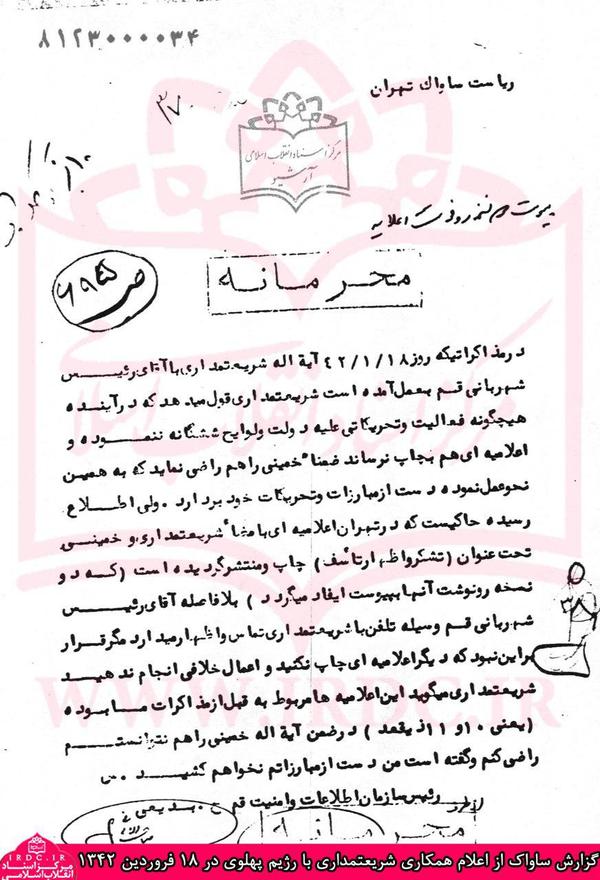 ۸۱۲۳۰۰۰۰۳۴
ریاست ساواک تهران
۳۷۰
مرکز اسناد انقلاب اسلامی
آرشیو
پیوست دو نسخه رونوشت اعلامیه
محرمانه
در مذاکراتیکه روز ۴۲/۱/۱۸ آیة اله شریعتمداری با آقای رئیس
شهربانی قم بعمل آمده است شریعتمداری قول میدهد که در آینده
هیچگونه فعالیت و تحریکاتی علیه دولت و لوایح ششگانه ننموده و
اعلامیه ای هم بچاپ نرساند ضمناً خمینی را هم راضی نماید که به همین
نحو عمل نموده دست از مبارزات و تحریکات خود بردارد . ولی اطلاع
رسیده حاکیست که در تهران اعلامیه ای بامضاً شریعتمداری و خمینی
تحت عنوان (تشکر و اظهار تأسف) چاپ و منتشر گردیده است (که دو
نسخه رونوشت آنها بپیوست ایفاد میگردد ) بلافاصله آقای رئیس
شهربانی قم وسیله تلفن با شریعتمداری تماس و اظهار میدارد مگر قرار
براین نبود که دیگر اعلامیه ای چاپ نکنید و اعمال خلافی انجام ندهید
شریعتمداری میگوید این اعلامیه ها مربوط به قبل از مذاکرات ما بوده
(یعنی ۱۰ و ۱۱ ذیقعد ) در ضمن آیة اله خمینی را هم نتوانستم
راضی کنم و گفته است من دست از مبارزاتم نخواهم کشید . س
رئیس سازمان اطلاعات و امنیت قم ح . بدیعی
محرمانه
مرکز اسناد انقلاب اسلامی
WWW.IRDC.IR
IRDC.IR
مرکز اسناد
انقلاب اسلامی
گزارش ساواک از اعلام همکاری شریعتمداری با رژیم پهلوی در ۱۸ فروردین ۱۳۴۲